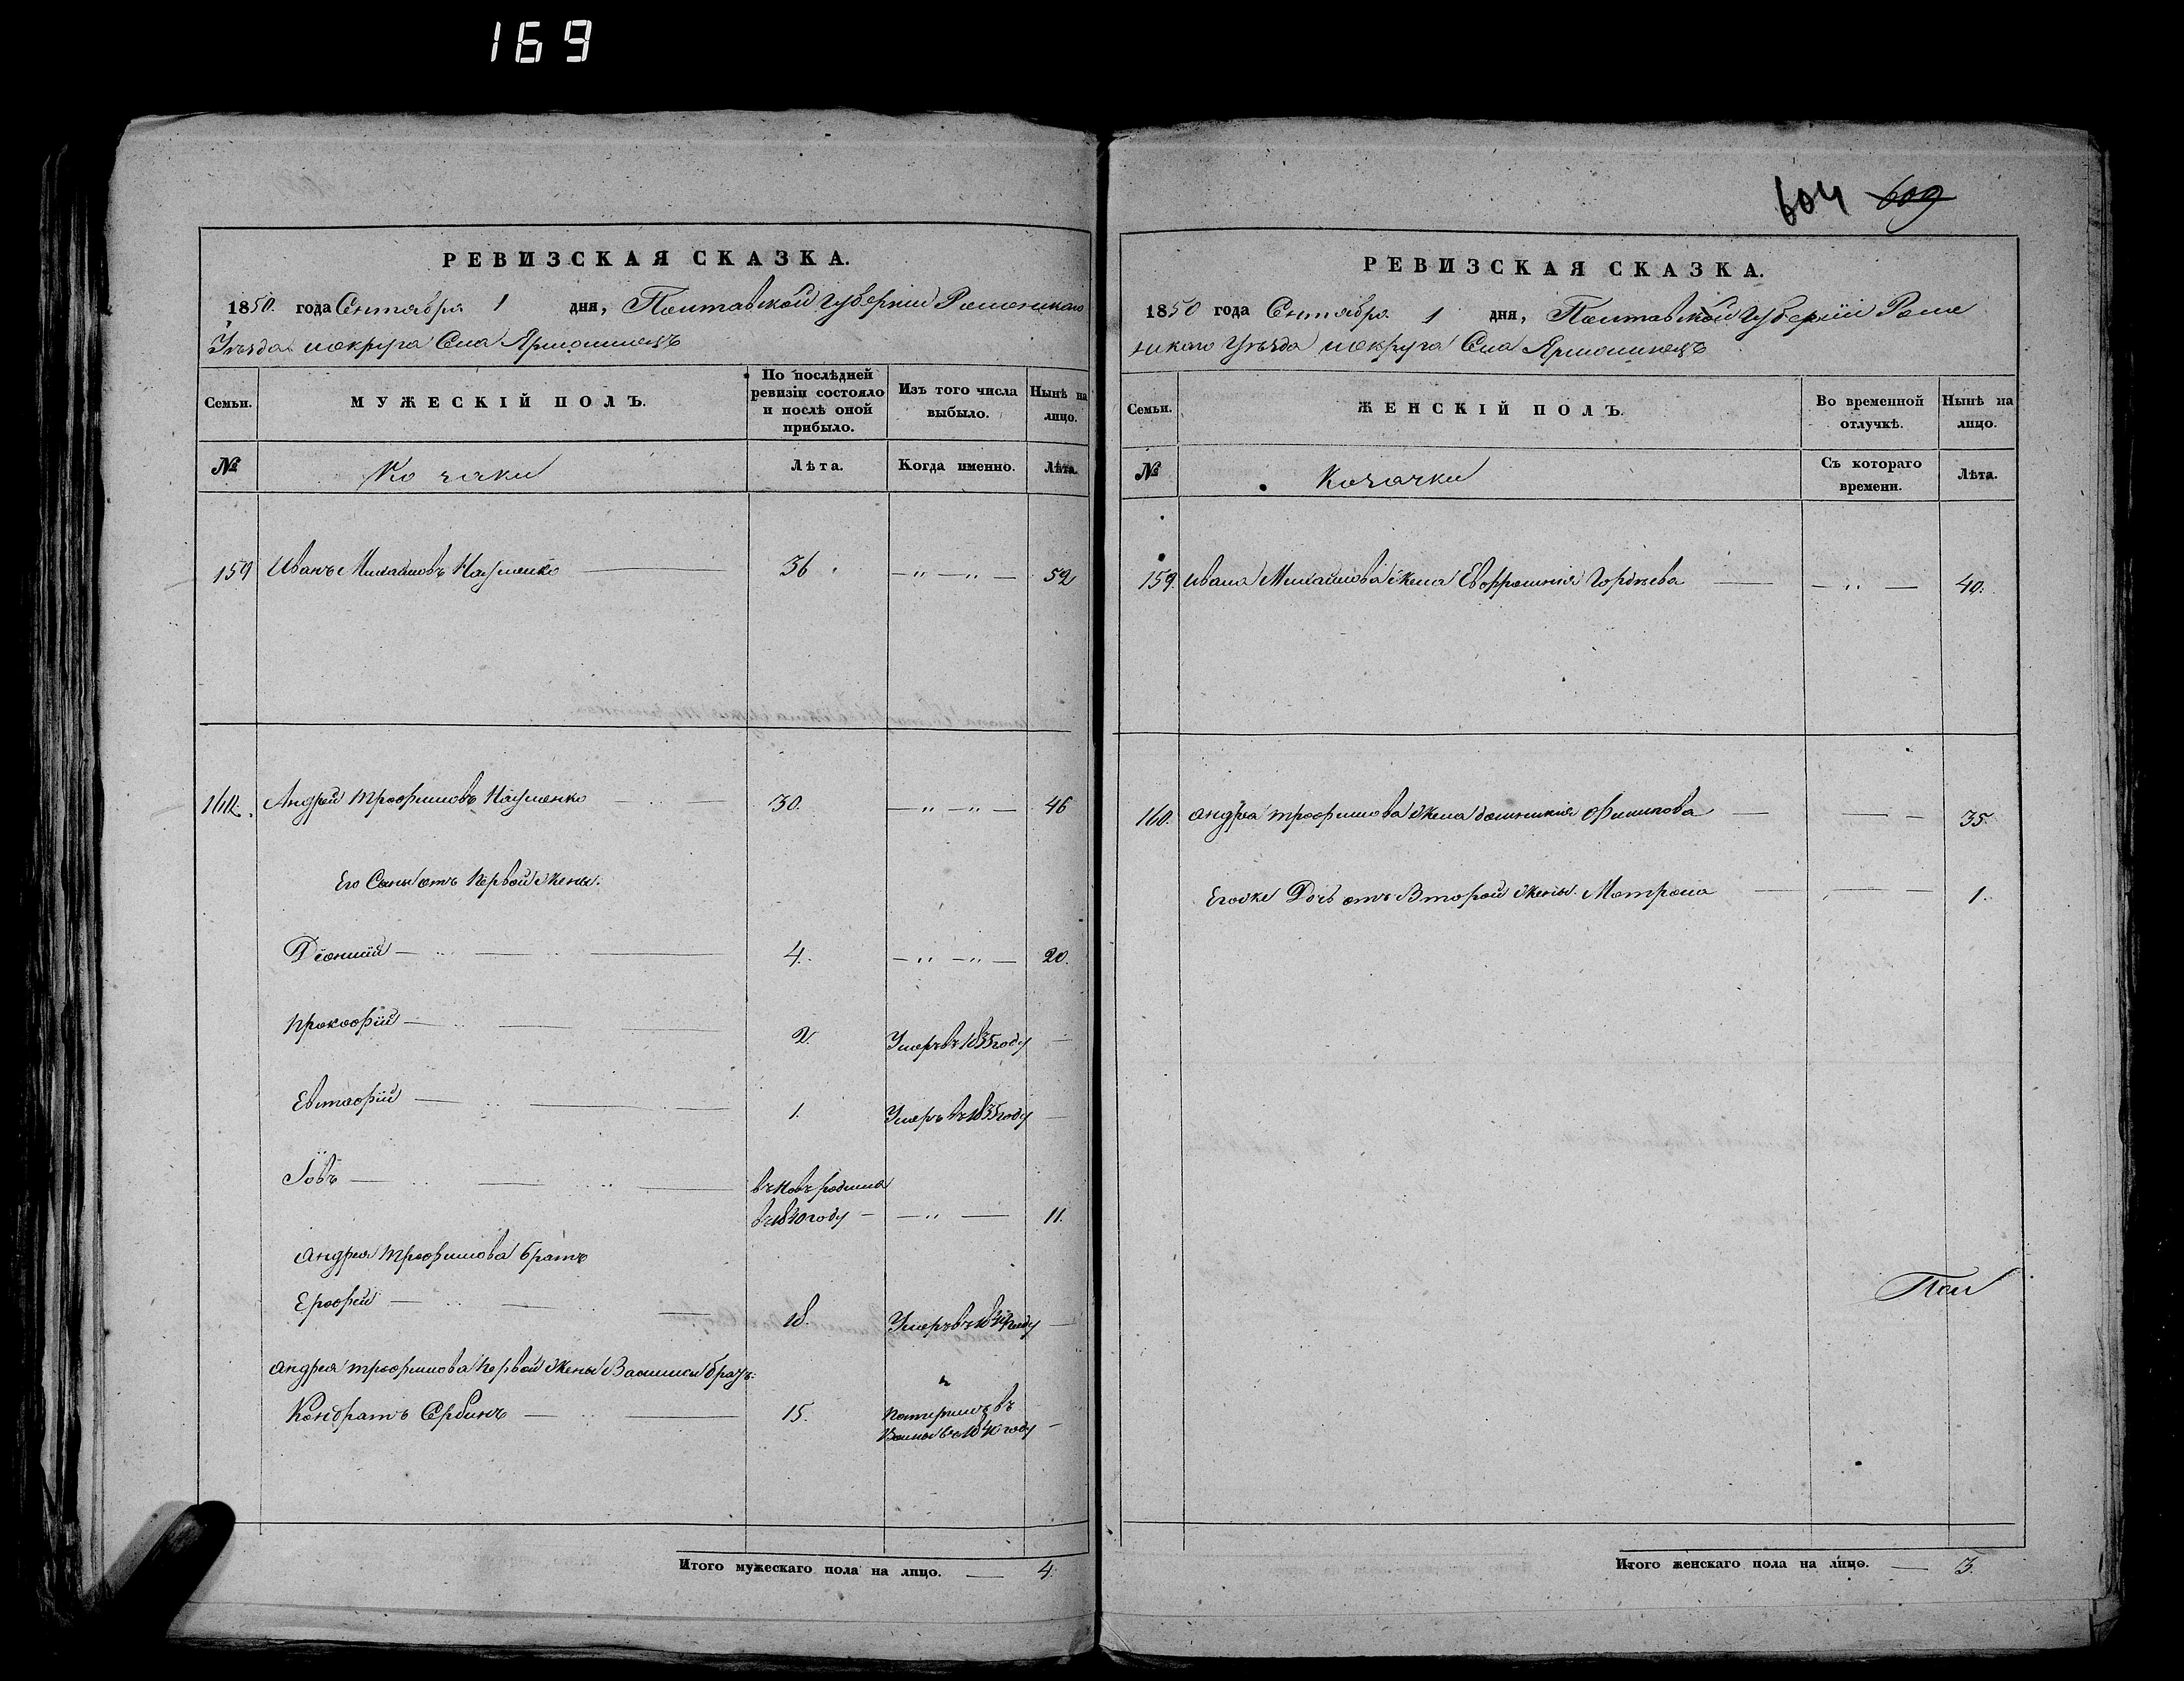 169
604 609
РЕВИЗСКАЯ СКАЗКА.
1850. года Сентября 1 дня, Полтавской губернии Роменскаго
Уѣзда округа Села Ярмолинецъ
Семьи. МУЖЕСКІЙ ПОЛЪ. По послѣдней ревизіи состояло и послѣ оной прибыло. Изъ того числа выбыло. Нынѣ на лицо.
№ Козаки Лѣта. Когда именно. Лѣта.
159 Иванъ Михайловъ Науменко 36 52
160. Андрей Трофимовъ Науменко 30. 46
Его Сыны отъ Первой жены.
Діонисій 4. 20.
Прокофій 2. Умеръ въ 1835 году
Евстафій 1. Умеръ въ 1835 году
Іовъ въ новъ родился
въ 1840 году 11.
Андрея Трофимова братъ
Ерофей 18. Умеръ въ году
Андрея Трофимова Первой жены Василисы братъ:
Кондратъ Сербинъ 15. году
Итого мужескаго пола на лицо. 4.
РЕВИЗСКАЯ СКАЗКА.
1850 года Сентября 1 дня, Полтавской Губерніи Роме
нскаго Уѣзда округа Села Ярмолинецъ
Семьи. ЖЕНСКІЙ ПОЛЪ. Во временной отлучкѣ. Нынѣ на лицо.
№ Козачки Съ котораго времени. Лѣта.
159. Ивана Михайлова жена Евфросинія Гордѣева 40.
160. Андрея Трофимова жена Домникія Филипова 35.
Егоже Дочь отъ Второй жены Матрона 1.
Итого женскаго пола на лицо. 3.